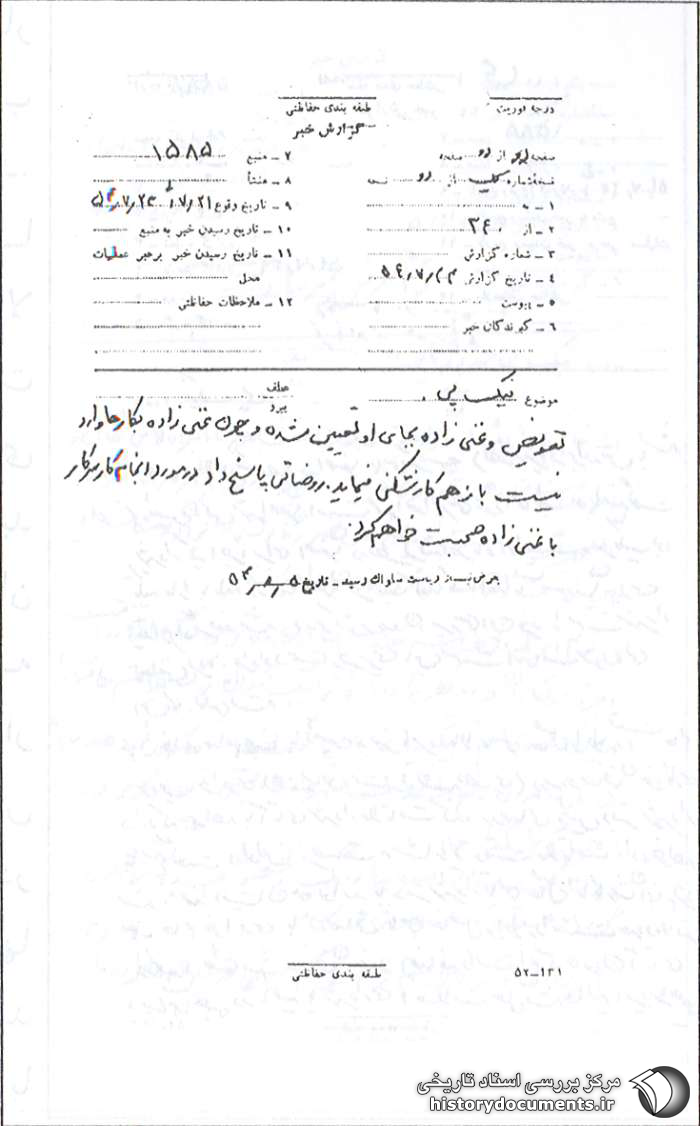 درجه فوریت
طبقه بندی حفاظتی
گزارش خبر
صفحه دو از دو صفحه
نسخه شماره یک از دو نسخه
۱ - به
۲ - از ۳۴۰
۳ - شماره گزارش
۴ - تاریخ گزارش ۵۴/۷/۲۳
۵ - پیوست
۶ - گیرندگان خبر
۷ - منبع ۱۵۸۵
۸ - منشأ
۹ - تاریخ وقوع ۷/۲۱
۱۰ - تاریخ رسیدن خبر به منبع
۱۱ - تاریخ رسیدن خبر برهبر عملیات
محل
۱۲ - ملاحظات حفاظتی
موضوع نیک پی
عطف
پیرو
تعویض و غنی زاده بجای او تعیین شده و چون غنی زاده بکارها وارد
نیست باز هم کارشکنی مینماید. روضاتی پاسخ داد در مورد انجام کار سرکار
با غنی زاده صحبت خواهم کرد.
بعرض ریاست ساواک رسید - تاریخ
طبقه بندی حفاظتی
۵۲-۱۳۱
مرکز بررسی اسناد تاریخی
historydocuments.ir